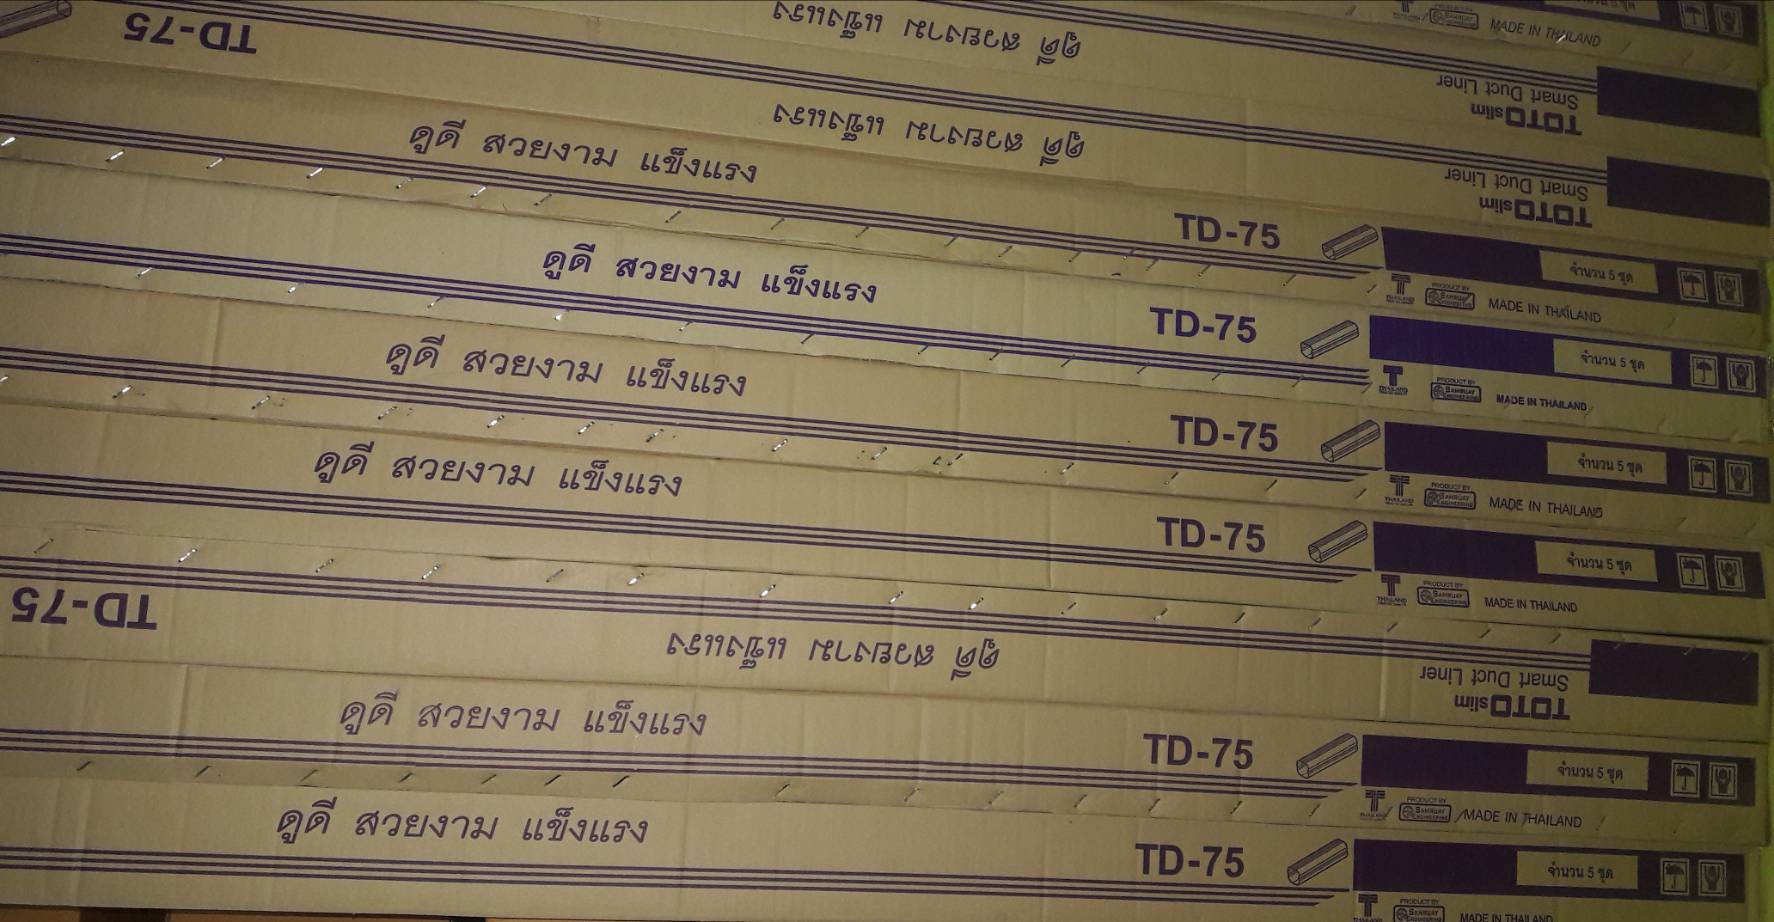 จำนวน 5 ชุด
MADE IN THAILAND
TD-75
ดูดี สวยงาม แข็งแรง
Smart Duct Liner
TOTOslim
ดูดี สวยงาม แข็งแรง
Smart Duct Liner
TOTOslim
ดูดี สวยงาม แข็งแรง
TD-75
จำนวน 5 ชุด
THAILAND
PRODUCT BY
SAMRUAY ENGINEERING
MADE IN THAILAND
ดูดี สวยงาม แข็งแรง
TD-75
จำนวน 5 ชุด
THAILAND
PRODUCT BY
SAMRUAY ENGINEERING
MADE IN THAILAND
ดูดี สวยงาม แข็งแรง
TD-75
จำนวน 5 ชุด
THAILAND
PRODUCT BY
SAMRUAY ENGINEERING
MADE IN THAILAND
ดูดี สวยงาม แข็งแรง
TD-75
จำนวน 5 ชุด
THAILAND
PRODUCT BY
SAMRUAY ENGINEERING
MADE IN THAILAND
TD-75
ดูดี สวยงาม แข็งแรง
Smart Duct Liner
TOTOslim
ดูดี สวยงาม แข็งแรง
TD-75
จำนวน 5 ชุด
THAILAND
PRODUCT BY
SAMRUAY ENGINEERING
MADE IN THAILAND
ดูดี สวยงาม แข็งแรง
TD-75
จำนวน 5 ชุด
PRODUCT BY
SAMRUAY ENGINEERING
MADE IN THAILAND